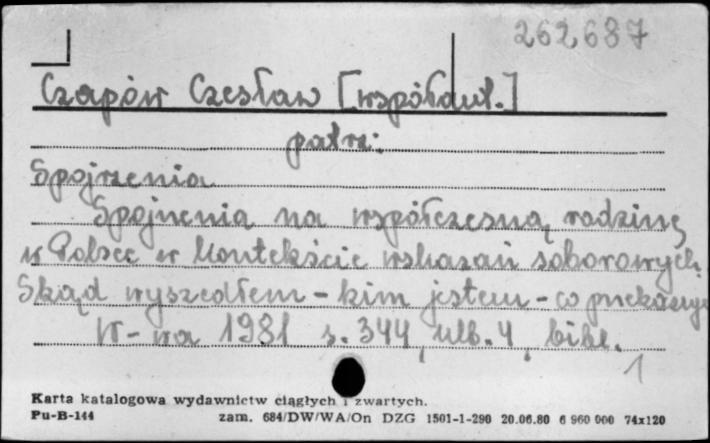 262687
Czapów Czesław [współaut.]
patrz:
Spojrzenia
Spojrzenia na współczesną rodzinę
w Polsce w kontekście wskazań soborowych.
Skąd wyszedłem - kim jestem - co przekazuję
W-wa 1981 s. 344, nlb. 4, bibl.
1
Karta katalogowa wydawnictw ciągłych i zwartych.
Pu-B-144 zam. 684/DW/WA/On DZG 1501-1-290 20.06.80 6 960 000 74x120